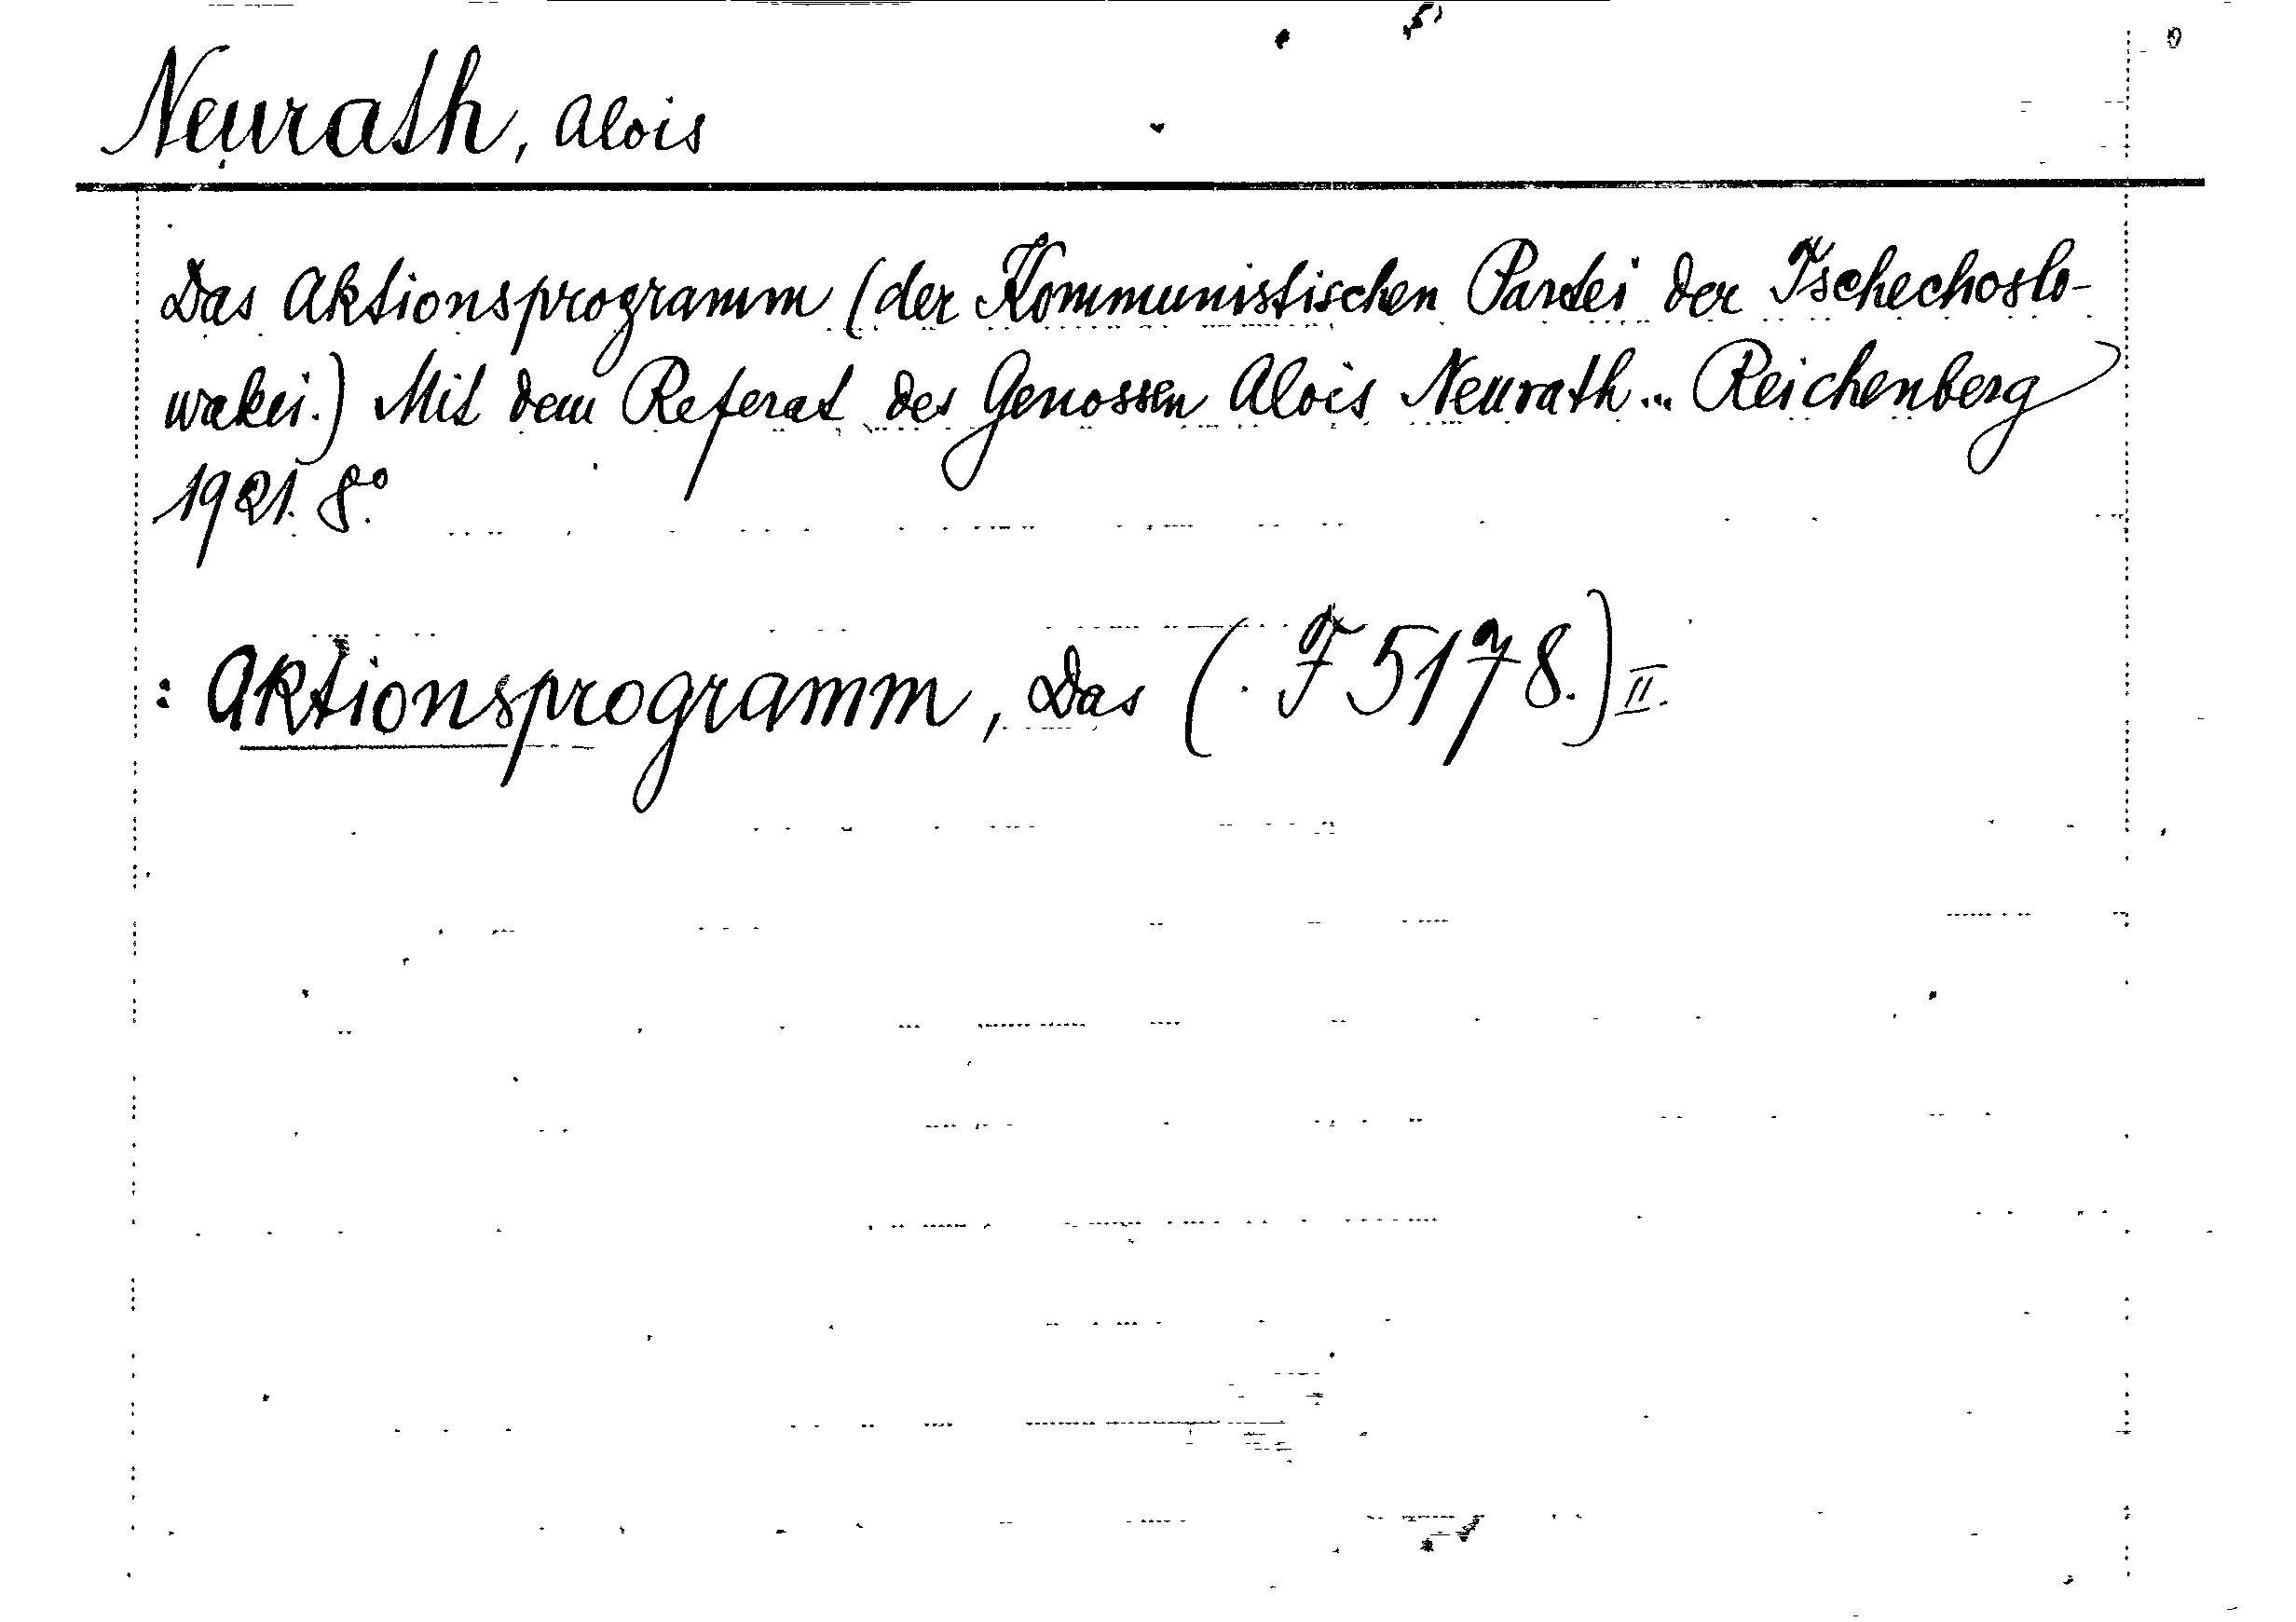 Neurath, Alois
Das Aktionsprogramm (der Kommunistischen Partei der Tschechoslo-
wakei.) Mit dem Referat des Genossen Alois Neurath... Reichenberg
1921. 8°.
: Aktionsprogramm, Das (. F 5178.) II.